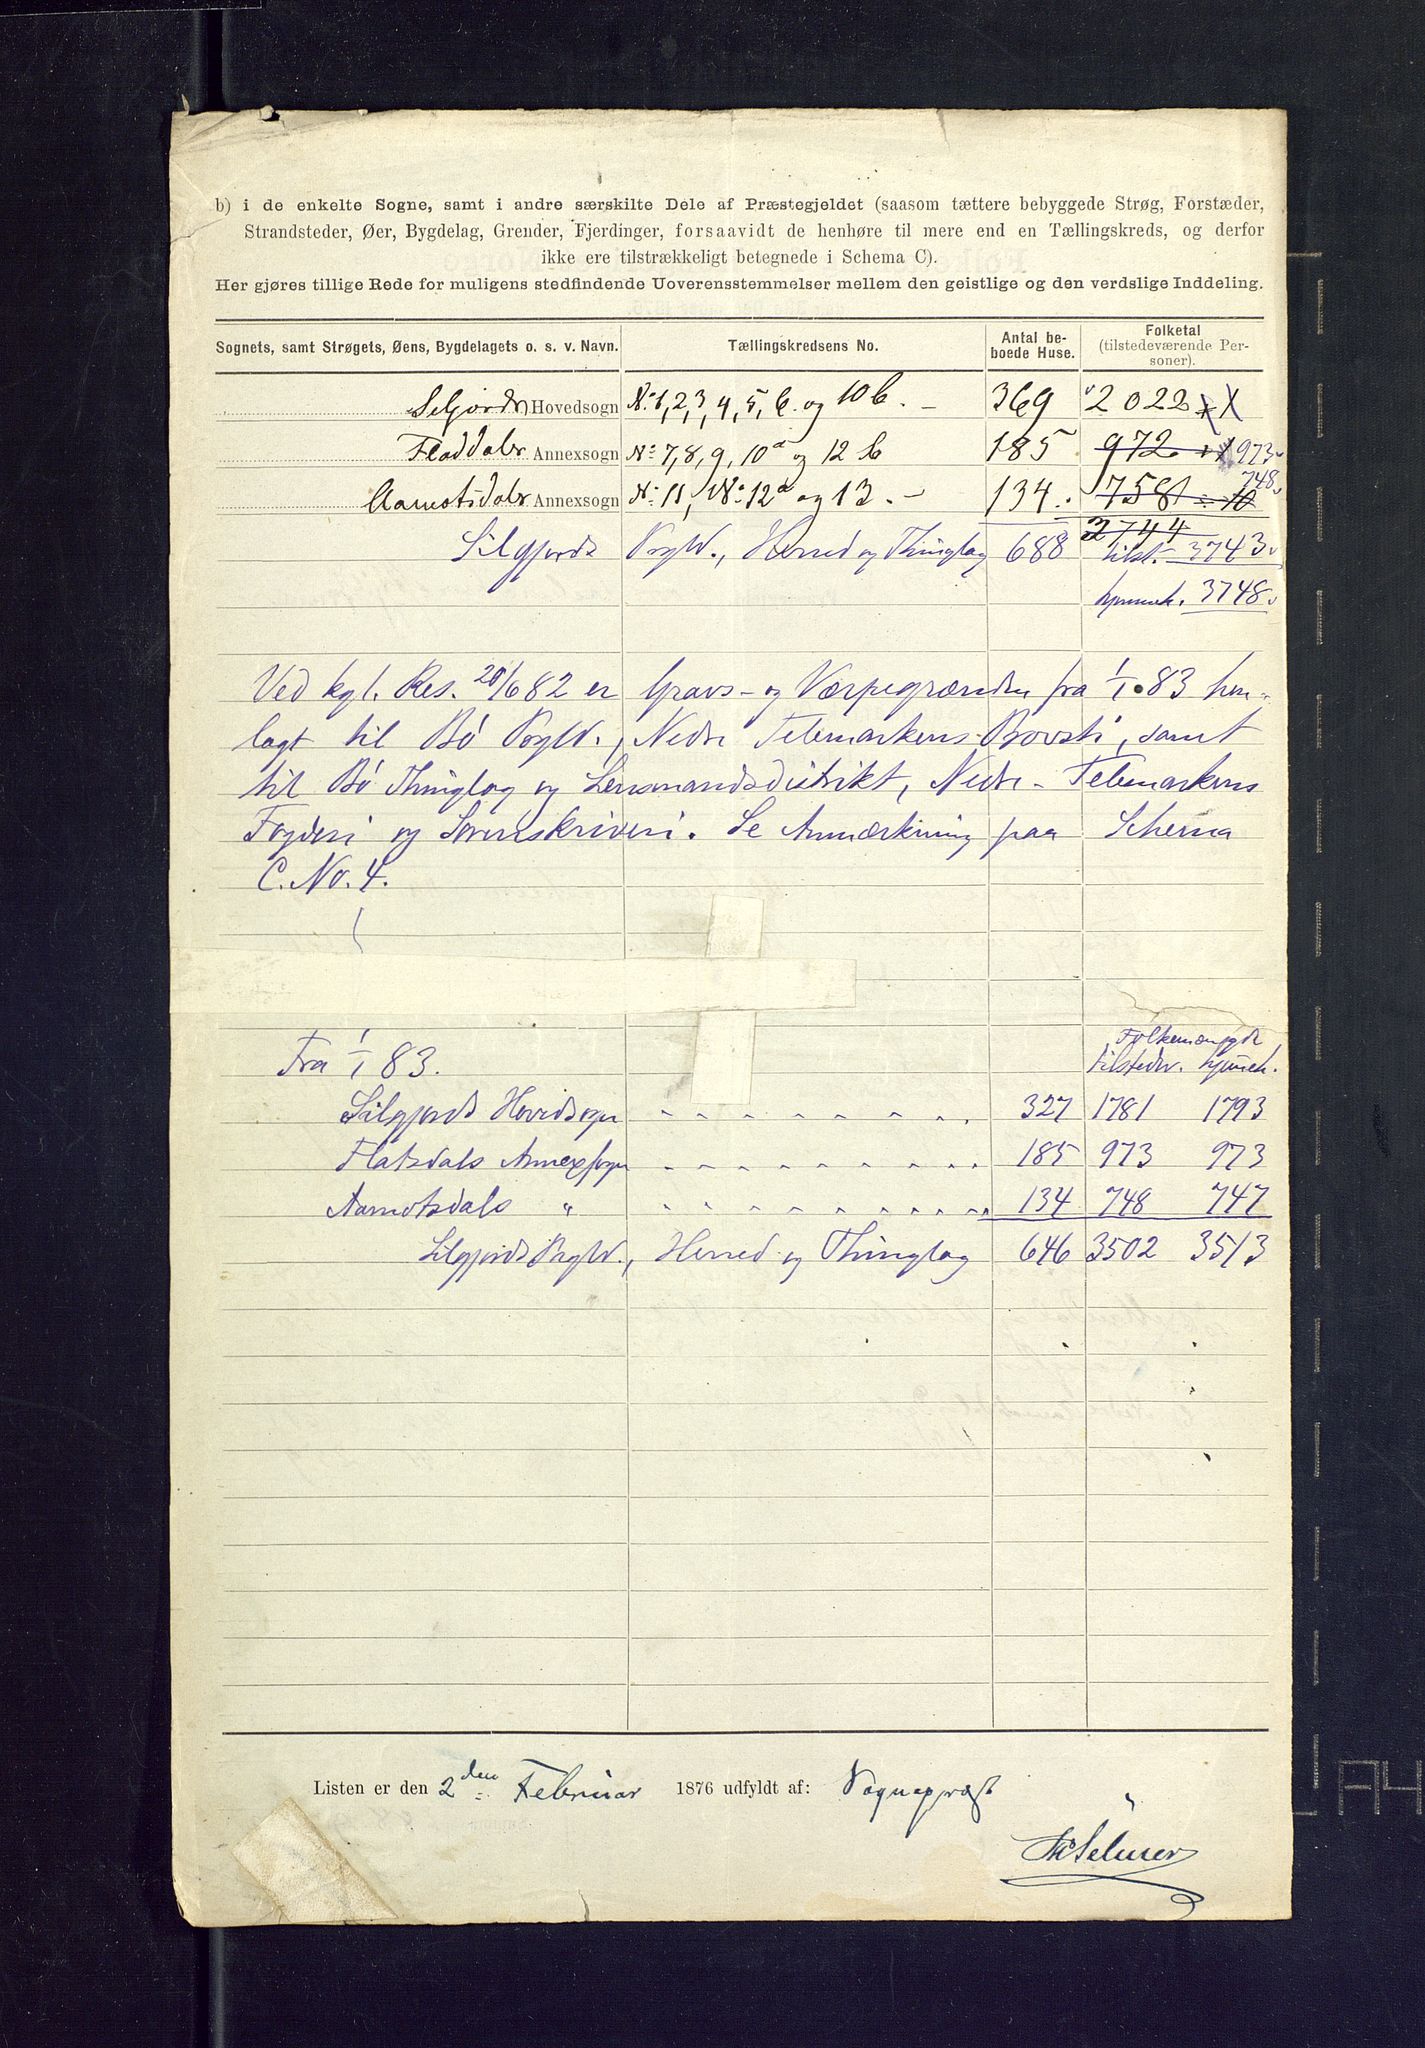 b) i de enkelte Sogne, samt i andre særskilte Dele af Præstegjeldet (saasom tættere bebyggede Strøg, Forstæder,
Strandsteder, Øer, Bygdelag, Grender, Fjerdinger, forsaavidt de henhøre til mere end en Tællingskreds, og derfor
ikke ere tilstrækkeligt betegnede i Schema C).
Her gjøres tillige Rede for muligens stedfindende Uoverensstemmelser mellem den geistlige og den verdslige Inddeling.
Sognets, samt Strøgets, Øens, Bygdelagets o. s. v. Navn. Tællingskredsens No. Antal be-
boede Huse. Folketal
(tilstedeværende Per-
soner).
Seljords Hovedsogn No 1, 2, 3, 4, 5, 6. og 10 b. 369 2022
Fladdals Annexsogn No 7, 8, 9, 10a og 12 b 185 972 973
Aamotsdals Annexsogn No 11, No 12a og 13. 134. 758 10 748
3744
Silgjords Prgld., Herred og Thinglag 688 tilst. 3743
hjemmeh. 3748
Ved kgl. Res. 20/6 82 er Gravs- og Værpegrænden fra 1/1 83 hen-
lagt til Bø Prgld., Nedre Telemarkens Provsti, samt
til Bø Thinglag og Lensmandsdistrikt, Nedre-Telemarkens
Fogderi og Sorenskriveri. Se Anmærkning paa Schema
C. No. 4.
Folkemængde
Fra 1/1 83. tilstedev. hjmeh.
Silgjords Hovedsogn 327 1781 1793
Flatsdals Annexsogn 185 973 973
Aamotsdals " 134 748 747
Silgjords Prgld., Herred og Thinglag 646 3502 3513
Listen er den 2den Februar 1876 udfyldt af: Sognepræst
Selmer